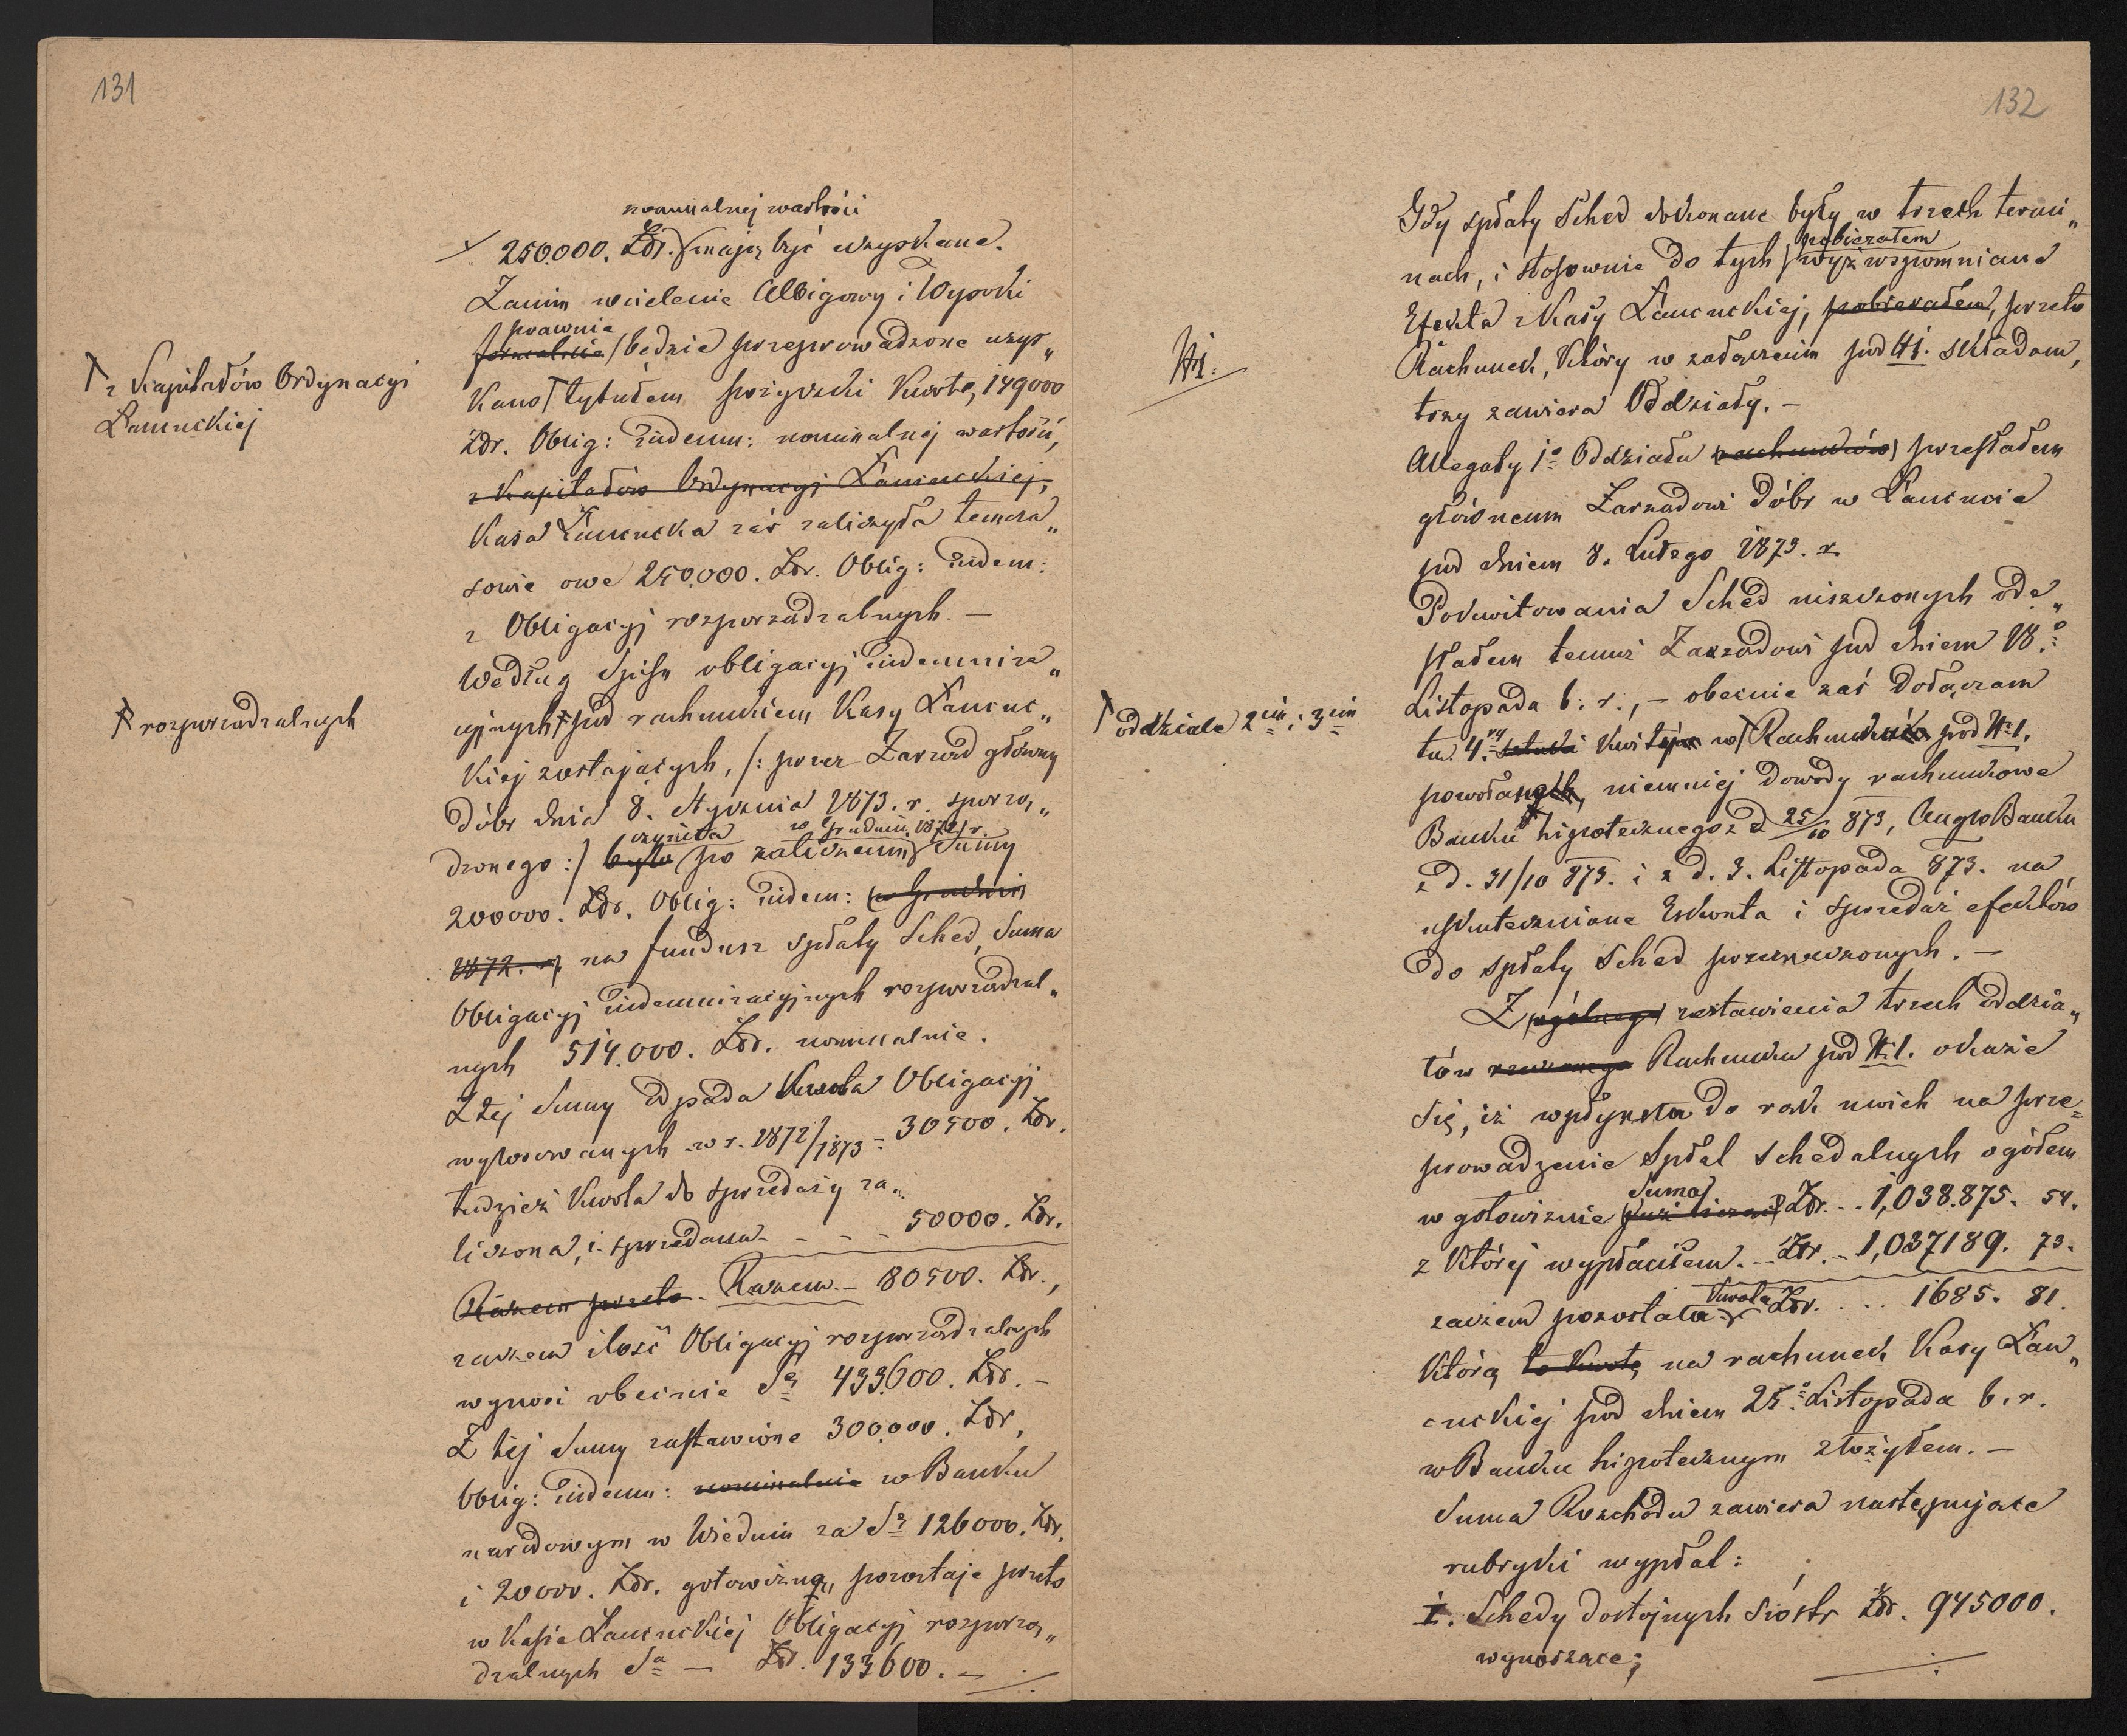 131
nominalnej wartości
250.000. Złr. mają być uzyskane.
Zanim wcielenie Albigowy i Wysoki
prawnie
formalnie będzie przeprowadzone uzys„
kano tytułem pożyczki Kwotę 149000
z Kapitałów Ordynacyi
Łańcuckiej
Złr. Oblig: indemn: nominalnej wartości,
z Kapitałów Ordynacyi Łańcuckiej,
Kasa Łańcucka zaś zaliczyła temcza„
sowie owe 250.000. Złr. Oblig: indem:
z Obligacyj rozporządzalnych. —
Według spisu obligacyj indemniza„
cyjnych pod rachunkiem Kasy Łańcuc„
rozporządzalnych
kiej zostających, /: przez Zarząd główny
dóbr dnia 8. Stycznia 1873. r. sporzą„
czyniła w Grudniu 1872 r.
dzonego :/ była po zaliczeniu Sumy
200000. Złr. Oblig: indem: w Grudniu
1872. r. na fundusz spłaty Sched, Suma
Obligacyj indemnizacyjnych rozporządzal„
nych 514.000. Złr. nominalnie.
Z tej Sumy odpada Kwota Obligacyj
wylosowanych w r. 1872/1873 - 30500. Złr.
tudzież Kwota do sprzedaży za„
liczona, i sprzedana - - - 50000. Złr.
Razem przeto - Razem - 80500. Złr.,
zaczem ilość Obligacyj rozporządzalnych
wynosi obecnie Sę 433600. Złr. —
Z tej Sumy zastawione 300.000. Złr,
Oblig: indemn: nominalnie w Banku
narodowym w Wiedniu za Sę 126000. Złr.
i 20000. Złr. gotowizną, pozostaje przeto
w Kasie Łańcuckiej Obligacyj rozporzą„
dzalnych Sa — Złr. 133600. —
132
Gdy spłaty Sched dokonane były w trzech termi„
pobierałem
nach, i stosownie do tych wyż wspomniane
Efekta z Kasy Łańcuckiej, pobierałem, przeto
Rachunek, który w załączeniu pod #1. składam,
#1.
trzy zawiera Oddziały. —
Allegaty 1o Oddziału rachunków przesłałem
głównemu Zarządowi Dóbr w Łańcucie
pod dniem 8. Lutego 1873. r.
Pokwitowania Sched uiszczonych ode„
słałem temuż Zarządowi pod dniem 18o
Listopada b. r., — obecnie zaś dołączam
oddziale 2im i 3im
tu 4ry sztuki Kwitów w Rachunku pod #1.
powołanych, niemniej dowody rachunkowe
Banku hipotecznego z d 25/10 873, Anglo Banku
z d. 31/10 873. i z d. 3. Listopada 873. na
uskutecznione Eskonta i sprzedaż efektów
do spłaty Sched przeznaczonych. —
Z ogólnego zestawienia trzech oddzia„
łów rzeczonego Rachunku pod #1. okazie
się, iż wpłynęła do rąk moich na prze=
prowadzenie Spłat schedalnych ogółem
Suma
w gotowiznie Złr. . . 1,038.875. 54.
z której wypłaciłem. - Złr. - 1,037189. 73.
Kwota
zaczem pozostała Złr. . . . 1685. 81.
którą to Kwotę na rachunek Kasy Łań„
cuckiej pod dniem 25o Listopada b. r.
w Banku hipotecznym złożyłem. —
Suma Rozchodu zawiera następujące
rubryki wypłat:
I. Schedy dostojnych Sióstr Złr. 945000.
wynoszące;